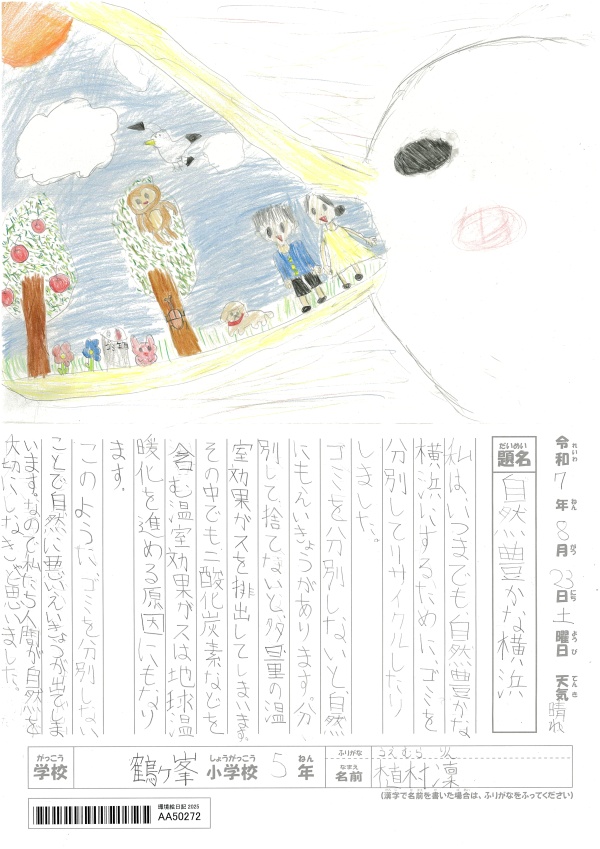 令和7年8月23日土曜日 天気 晴れ
れいわ ねん がつ にち ようび てんき
だいめい
題名 自然豊かな横浜
私は、いつまでも、自然豊かな
横浜にいするために、ゴミを
分別してリサイクルしたり
しました。
ゴミを分別しないと、自然
にもえいきょうがあります。分
別して捨てないと、多量の温
室効果ガスを排出してしまいます。
その中でも二酸化炭素などを
含む温室効果ガスは地球温
暖化を進める原因にもなり
ます。
このように、ゴミを分別しない
ことで自然に悪いえいきょうが出てしま
います。なので私たち人間が自然を
大切にしなきゃと思いました。
がっこう しょうがっこう ねん
学校 鶴ヶ峯小学校 5年
ふりがな うえむら
なまえ
名前 植村凜
(漢字で名前を書いた場合は、ふりがなをふってください)
環境絵日記 2025
AA50272